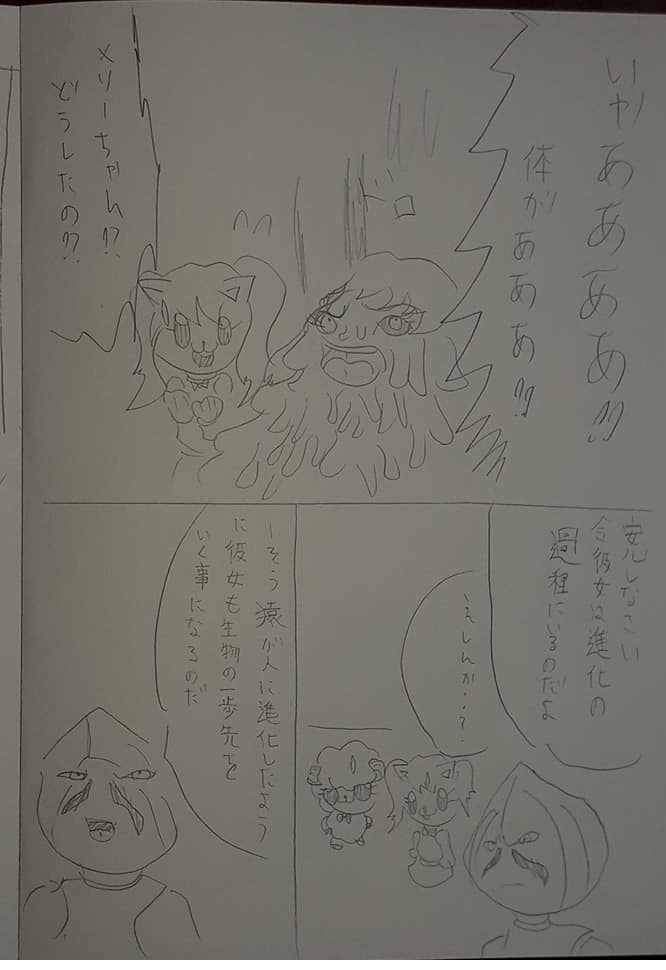 いやああああ!?
体がああああ!?
ドロ
メリーちゃん!?
どうしたの!?
安心しなさい
今彼女は進化の
過程にいるのだよ
えしんか・・?
ーそう猿が人に進化したよう
に彼女も生物の一歩先を
いく事になるのだ